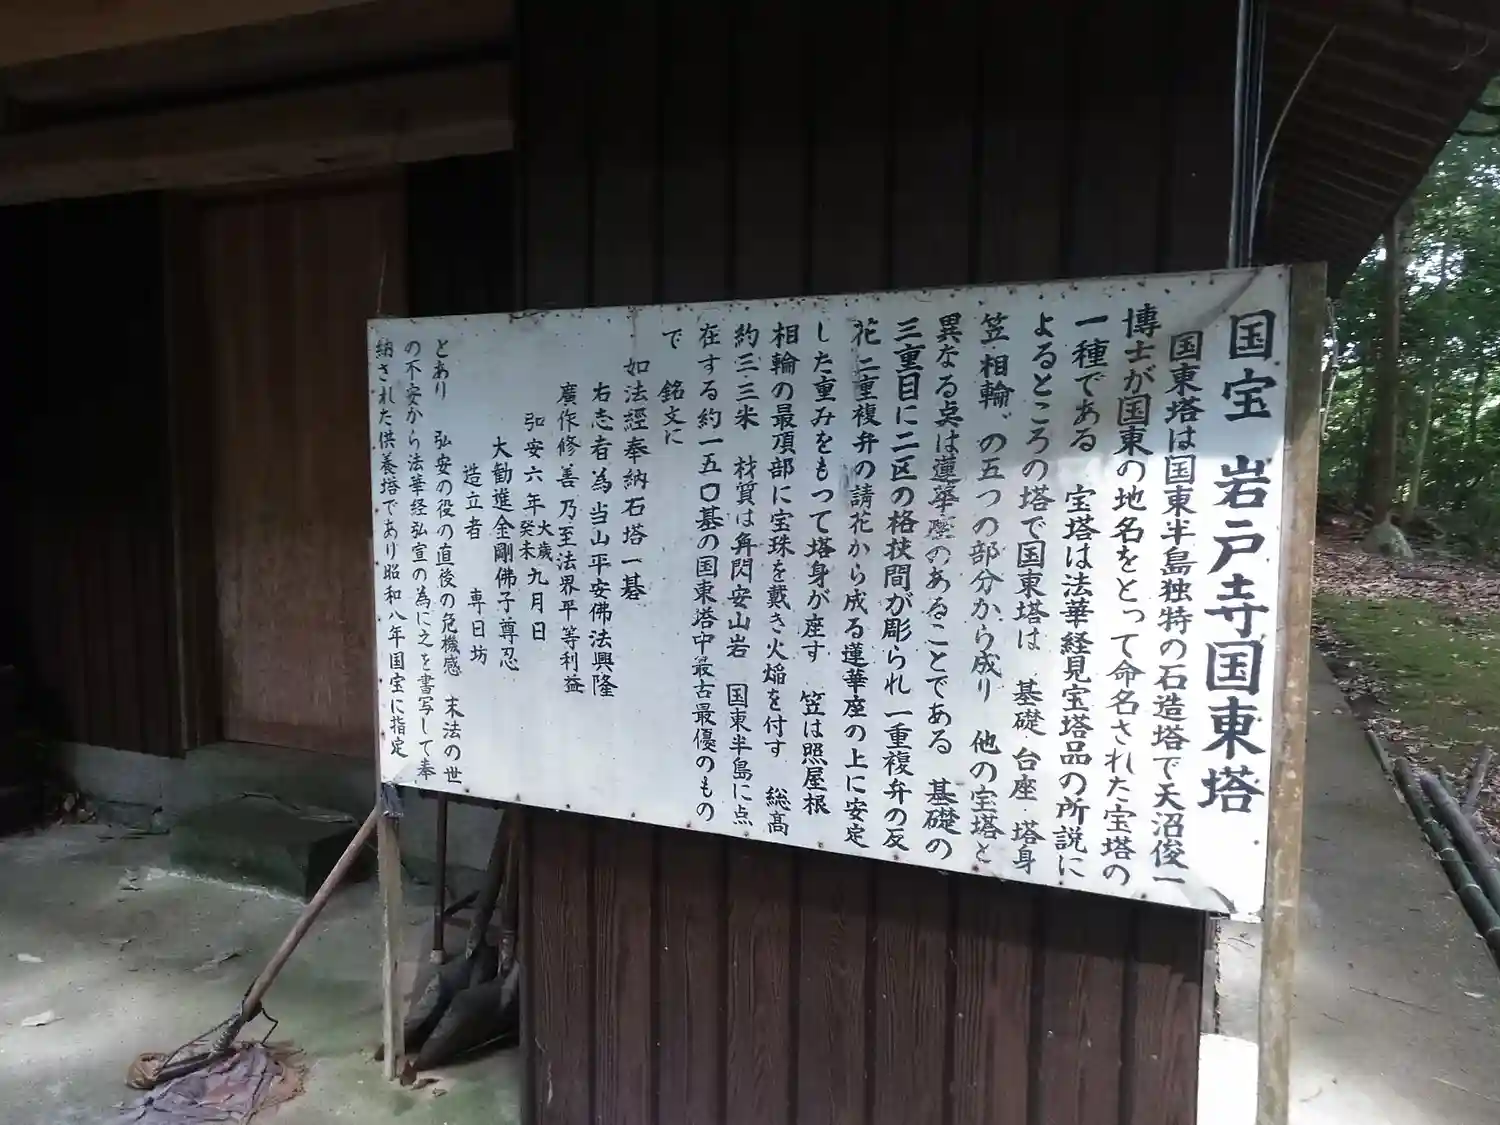 国宝 岩戸寺国東塔
国東塔は国東半島独特の石造塔で天沼俊一
博士が国東の地名をとって命名された宝塔の
一種である 宝塔は法華経見宝塔品の所説に
よるところの塔で国東塔は 基礎 台座 塔身
笠 相輪〟の五つの部分から成り 他の宝塔と
異なる点は蓮華座のあることである 基礎の
三重目に二区の格狭間が彫られ一重複弁の反
花 二重複弁の請花から成る蓮華座の上に安定
した重みをもつて塔身が座す 笠は照屋根
相輪の最頂部に宝珠を戴き火焔を付す 総高
約三・三米 材質は角閃安山岩 国東半島に点
在する約一五〇基の国東塔中最古最優のもの
で 銘文に
如法經奉納石塔一基
右志者為当山平安佛法興隆
廣作修善乃至法界平等利益
弘安六年大歳癸未九月日
大勧進金剛佛子尊忍
造立者 専日坊
とあり 弘安の役の直後の危機感 末法の世
の不安から法華経弘宣の為に之を書写して奉
納された供養塔であり昭和八年国宝に指定